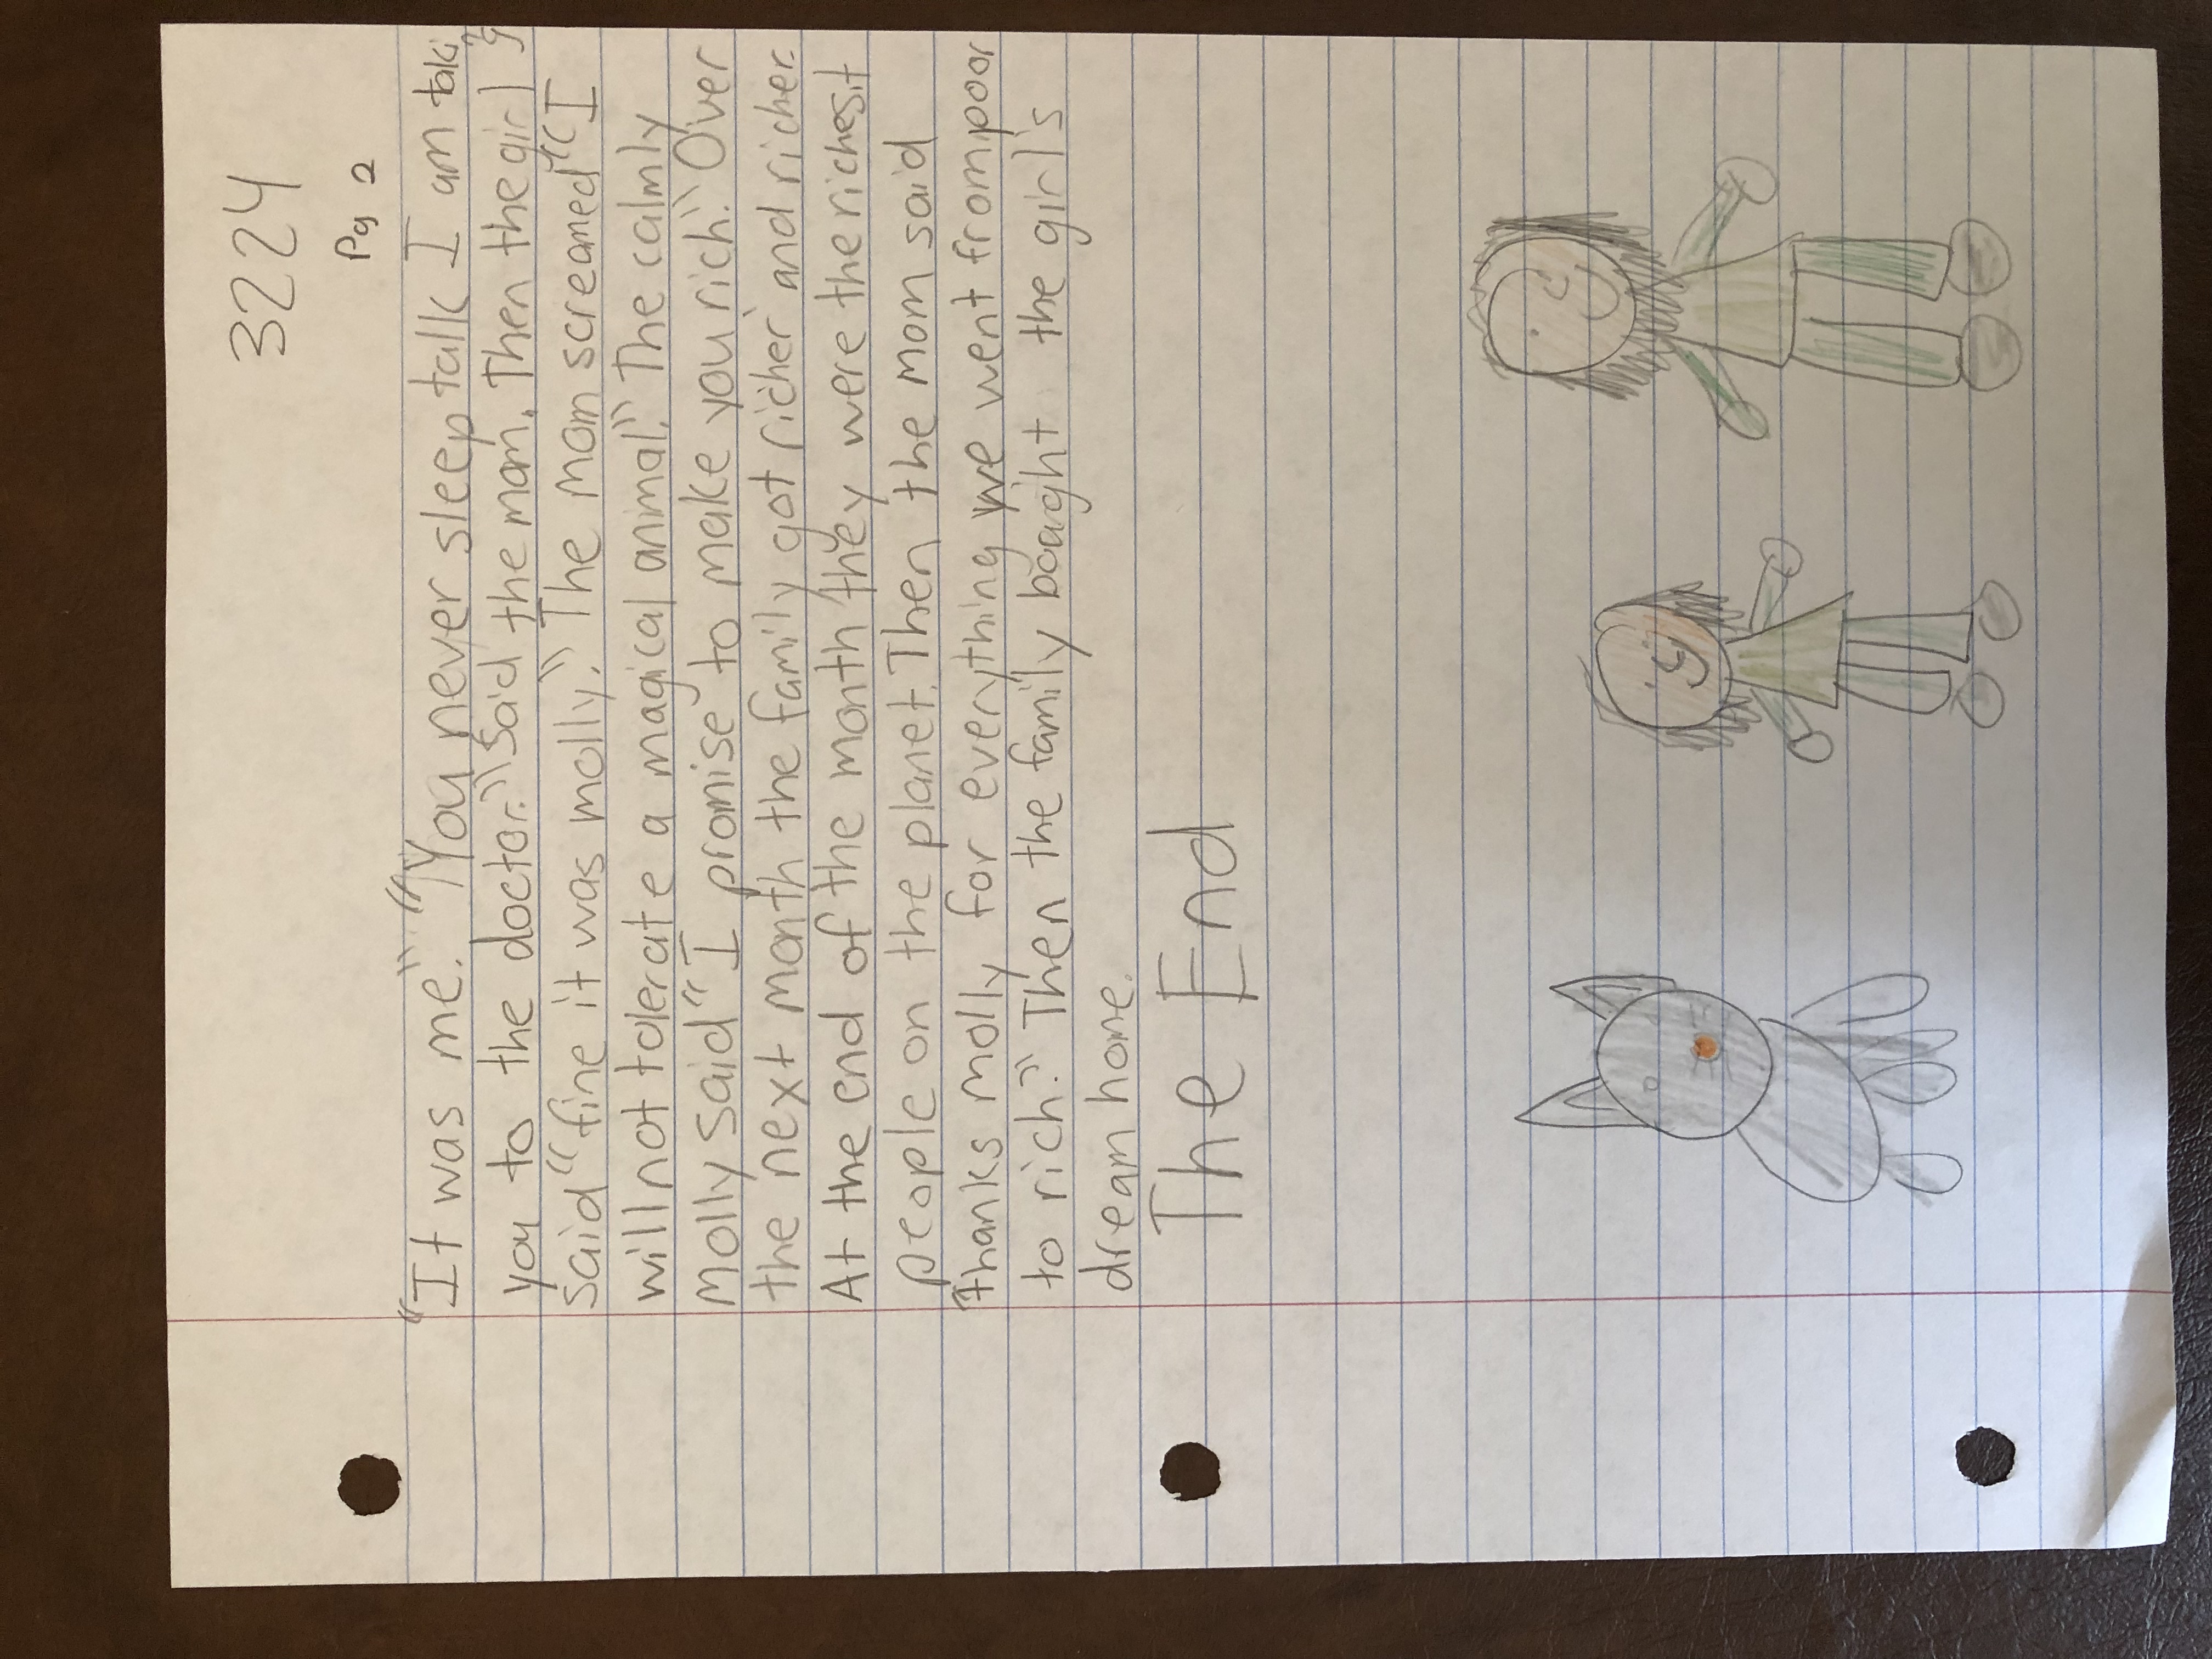 3224
Pg 2
"It was me." "You never sleep talk I am taking
you to the doctor." Said the mom. Then the girl
said "fine it was molly." The mom screamed "I
will not tolerate a magical animal." The calmly
molly said "I promise to make you rich." Over
the next month the family got richer and richer.
At the end of the month they were the richest
people on the planet. Then the mom said
"thanks molly for everything we went from poor
to rich." Then the family bought the girl's
dream home.
The End